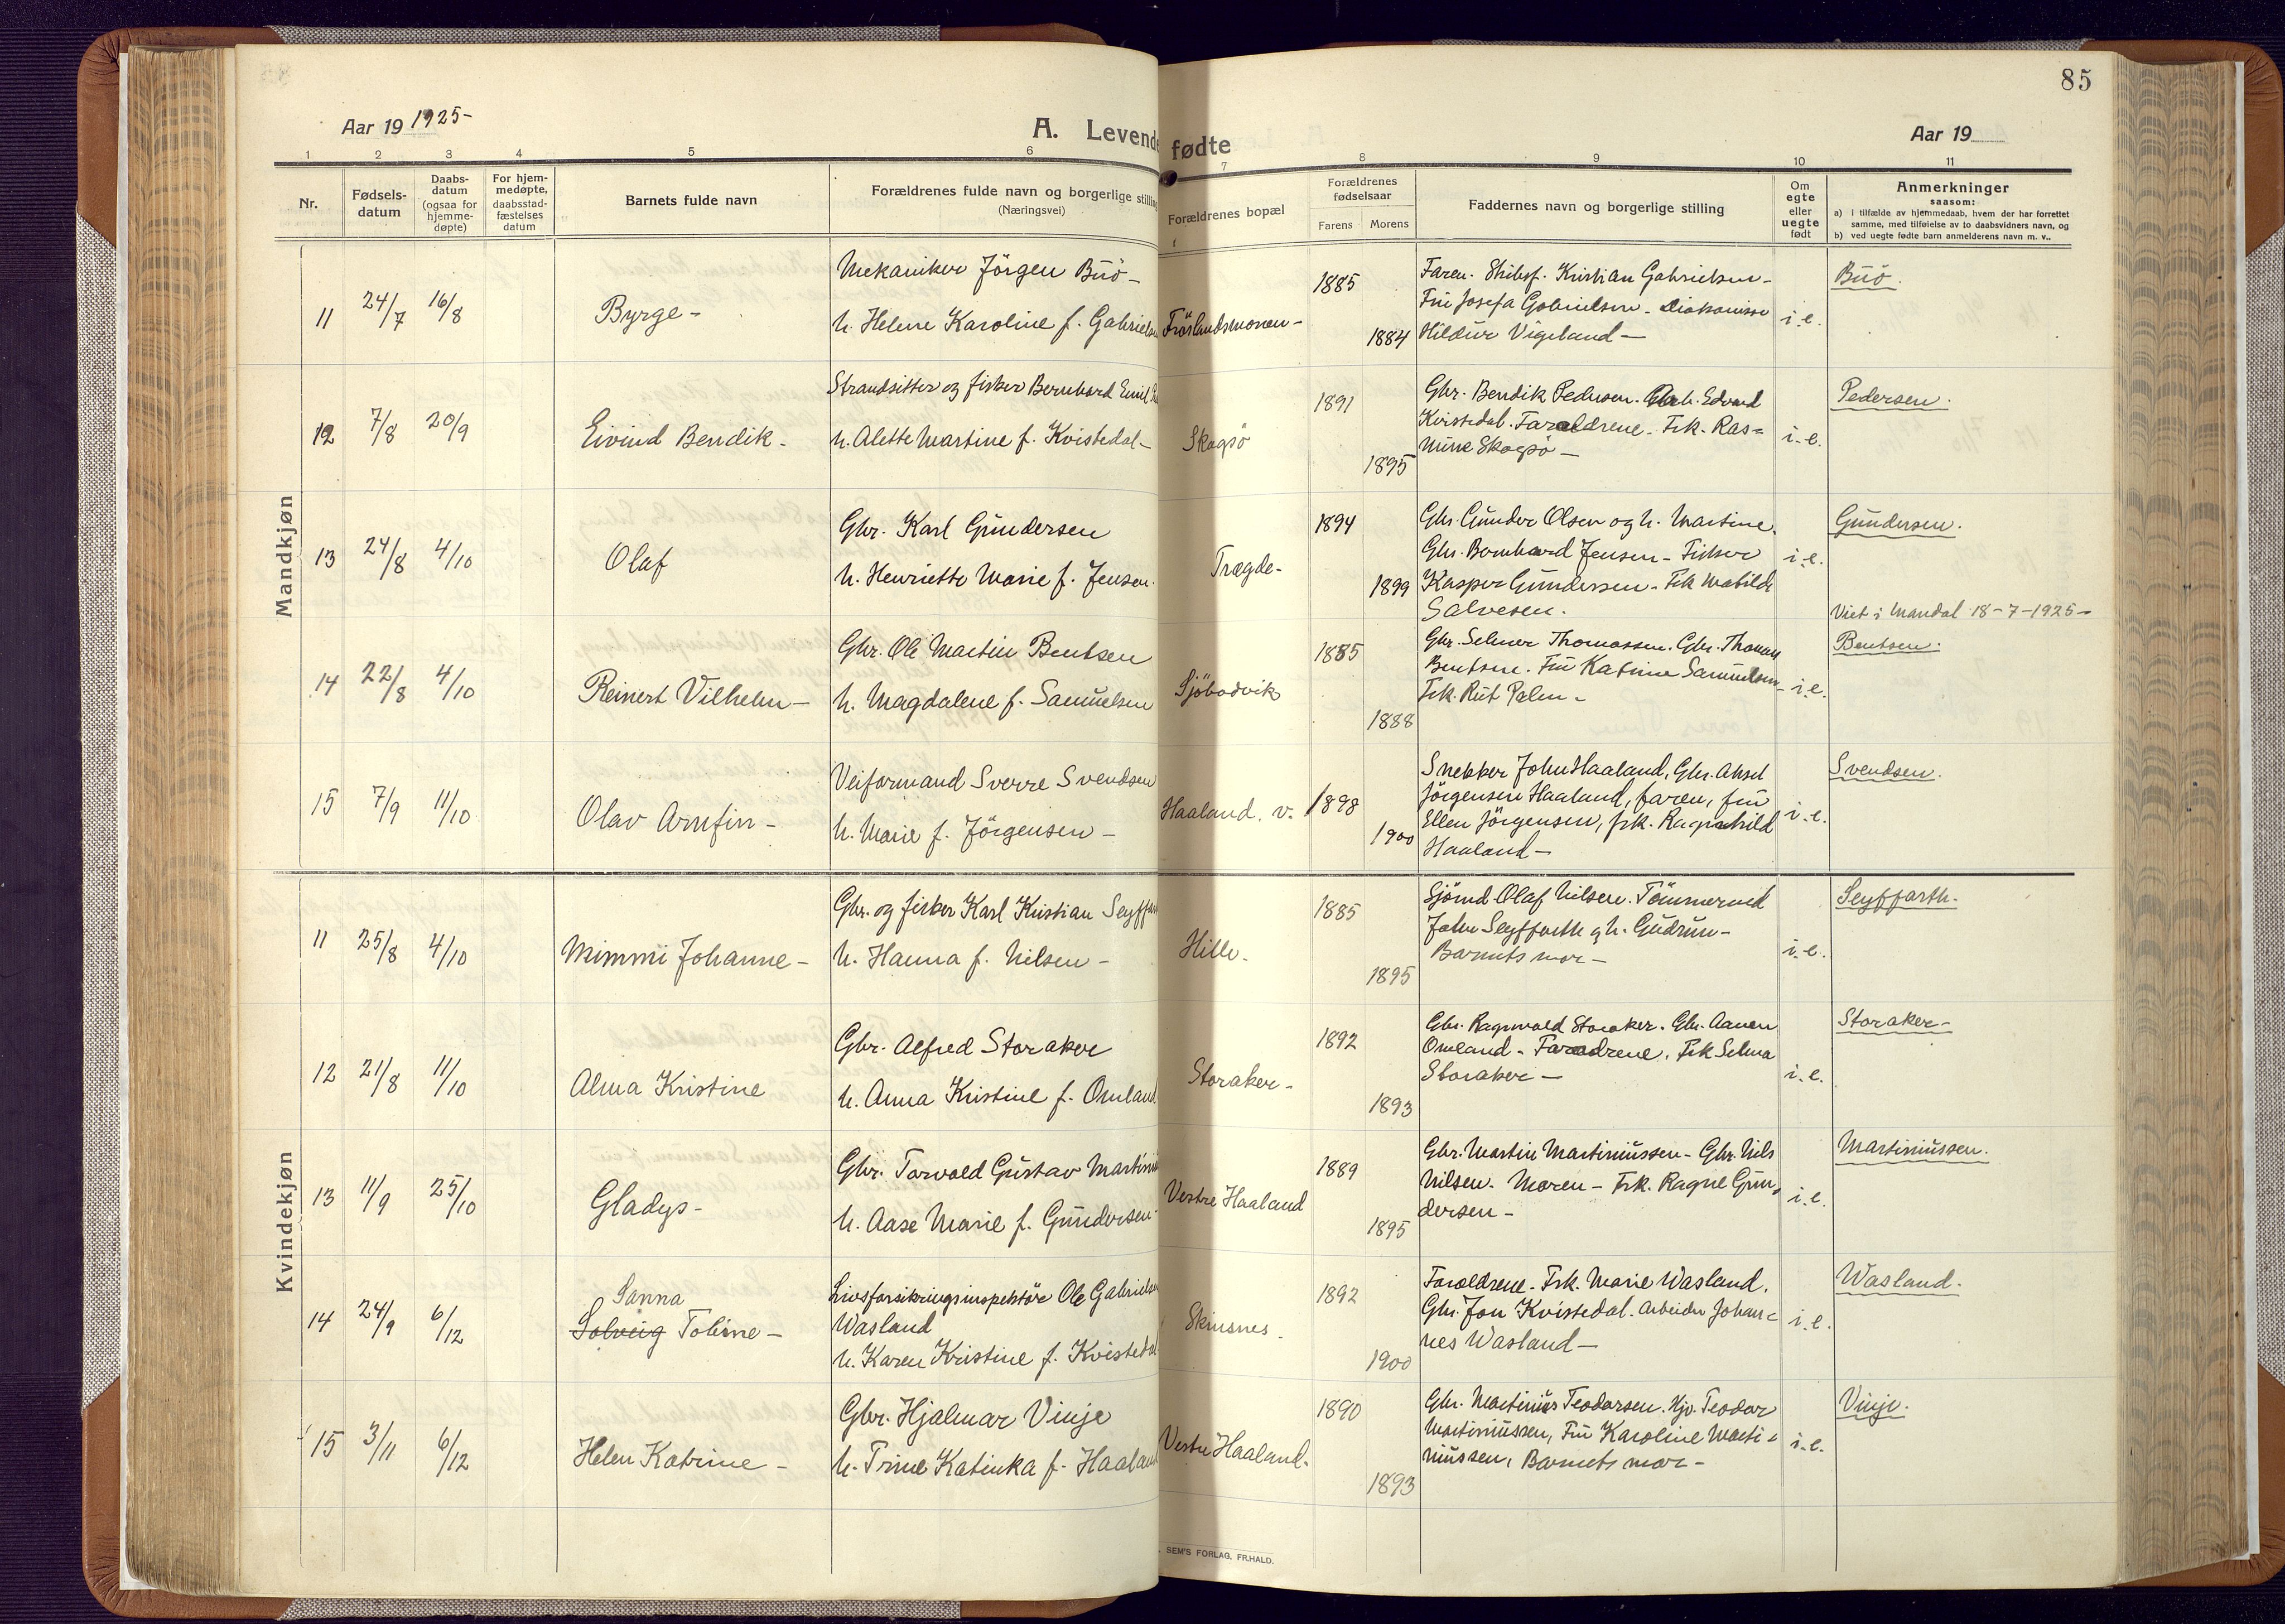 85
Aar 19 1925-
A. Levende fødte
Aar 19
1 2 3 4 5 6 7 8 9 10 11
Nr.
Fødsels-
datum
Daabs-
datum
(ogsaa for
hjemme-
døpte)
For hjem-
medøpte,
daabsstad-
fæstelses
datum
Barnets fulde navn
Forældrenes fulde navn og borgerlige stilling
(Næringsvei)
Forældrenes bopæl
Forældrenes
fødselsaar
Farens Morens
Faddernes navn og borgerlige stilling
Om
egte
eller
uegte
født
Anmerkninger
saasom:
a) i tilfælde av hjemmedaab, hvem der har forrettet
samme, med tilføielse av to daabsvidners navn, og
b) ved uegte fødte barn anmelderens navn m. v..
Mandkjøn
11 24/7 16/8 Byrge -
Mekaniker Jörgen Buö -
h. Helene Karoline f. Gabrielsen
Fröslandsmonen -
1885
1884
Faren. Skibsf. Kristian Gabrielsen -
Fru Josefa Gabrielsen - Diakonisse
Hildur Vigeland -
i.e.
Buö.
12 7/8 20/9 Eivind Bendik -
Strandsitter og fisker Bernhard Emil
h. Alette Martine f. Kvistedal -
Skogsö
1891
1895
Gbr. Bendik Pedersen. Edvard
Kvistedal. Forældrene. Frk. Ras=
mine Skogsö -
i.e.
Pedersen.
13 24/8 4/10 Olaf
Gbr. Karl Gundersen
h. Henriette Marie f. Jensen.
Trægde -
1894
1899
Gbr. Gunder Olsen og h. Martine.
Gbr. Bernhard Jensen - Fisker
Kasper Gundersen - Frk Matilde
Salvesen.
i.e.
Gundersen.
Viet i Mandal 18-7-1925-
14 22/8 4/10 Reinert Vilhelm -
Gbr. Ole Martin Bentsen
h. Magdalene f. Samuelsen
Sjöbodvik
1885
1888
Gbr. Selmer Thomassen. Gbr. Thomas
Bentsen. Fru Katrine Samuelsen
Frk. Rut Palen -
i.e.
Bentsen.
15 7/9 11/10 Olav Arnfin -
Veiformand Sverre Svendsen
h. Marie f. Jörgensen -
Haaland. v.
1898
1900
Snekker John Haaland, Gbr. Aksel
Jörgensen Haaland, faren, fru
Ellen Jörgensen, frk. Ragnhild
Haaland -
i.e.
Svendsen.
Kvindekjøn
11 25/8 4/10 Mimmi Johanne -
Gbr. og fisker Karl Kristian Seyffarth
h. Hanna f. Nilsen -
Hille.
1885
1895
Sjömd Olaf Nilsen. Tömmermd
John Seyffarth g h. Gudrun -
Barnets mor -
i.e.
Seyffarth.
12 21/8 11/10 Alma Kristine
Gbr. Alfred Storaker
h. Anna Kristine f. Omland
Storaker -
1892
1893
Gbr. Ragnvald Storaker. Gbr. Aanen
Omland - Forældrene. Frk Selma
Storaker -
i.e.
Storaker -
13 11/9 25/10 Gladys -
Gbr. Torvald Gustav Martinius
h. Aase Marie f. Gundersen
Vestre Haaland
1889
1895
Gbr. Martin Martiniussen - Gbr. Nils
Nilsen. Moren - Frk. Ragne Gun=
dersen -
i.e.
Martiniussen.
14 24/9 6/12 Sanna
Solveig Tobine -
Livsforsikringsinspektör Ole Gabrielsen
Wasland
h. Karen Kristine f. Kvistedal
Skinsnes.
1892
1900
Foroldrene. Frk. Marie Wasland.
Gbr. Jon Kvistedal. Arbeider Johan=
nes Wasland -
i.e.
Wasland.
15 3/11 6/12 Helen Katrine -
Gbr. Hjalmar Vinje
h. Trine Katinka f. Haaland
Vestre Haaland.
1890
1893
Gbr. Martinius Teodorsen. Teodor
Martiniussen, Fru Karoline Marti=
niussen, Barnets mor -
i.e.
Vinje.
SEM'S FORLAG, FR.HALD.